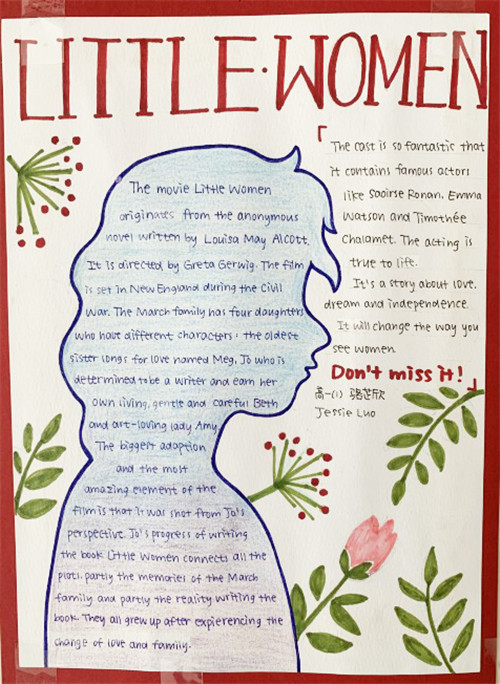 LITTLE·WOMEN
The movie Little Women
originates from the anonymous
novel written by Louisa May Alcott.
It is directed by Greta Gerwig. The film
is set in New England during the Civil
War. The March family has four daughters
who have different characters: the oldest
sister longs for love named Meg, Jo who is
determined to be a writer and earn her
own living, gentle and careful Beth
and art-loving lady Amy.
The biggest adaption
and the most
amazing element of the
film is that it was shot from Jo's
perspective. Jo's progress of writing
the book Little Women connects all the
plots, partly the memories of the March
family and partly the reality writing the
book. They all grew up after expierencing the
change of love and family.
「The cast is so fantastic that
it contains famous actors
like Saoirse Ronan, Emma
Watson and Timothée
Chalamet. The acting is
true to life.
It's a story about love,
dream and independence.
It will change the way you
see women.
Don't miss it!」
高一(1) 骆芷欣
Jessie Luo